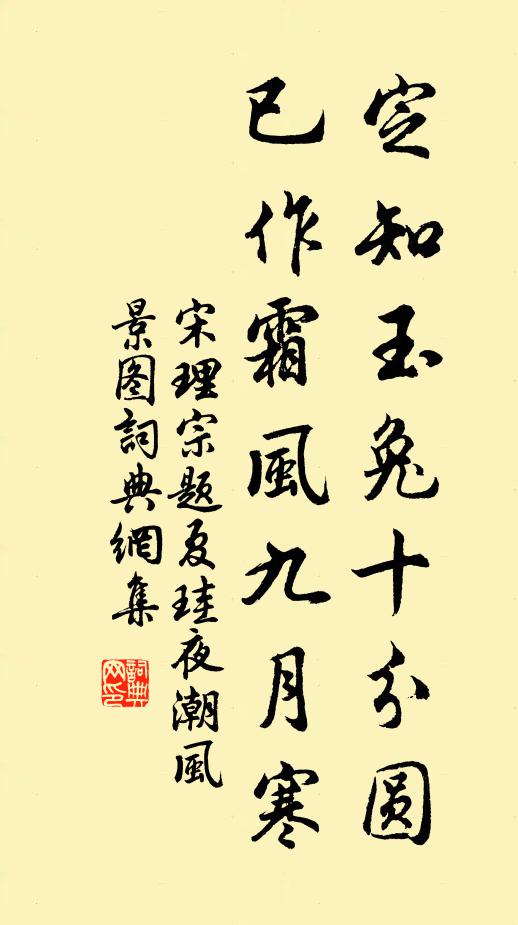 定知玉兔十分圆
已作霜風九月寒
宋理宗題夏珪夜潮風
景图詞典網集
詞典网印